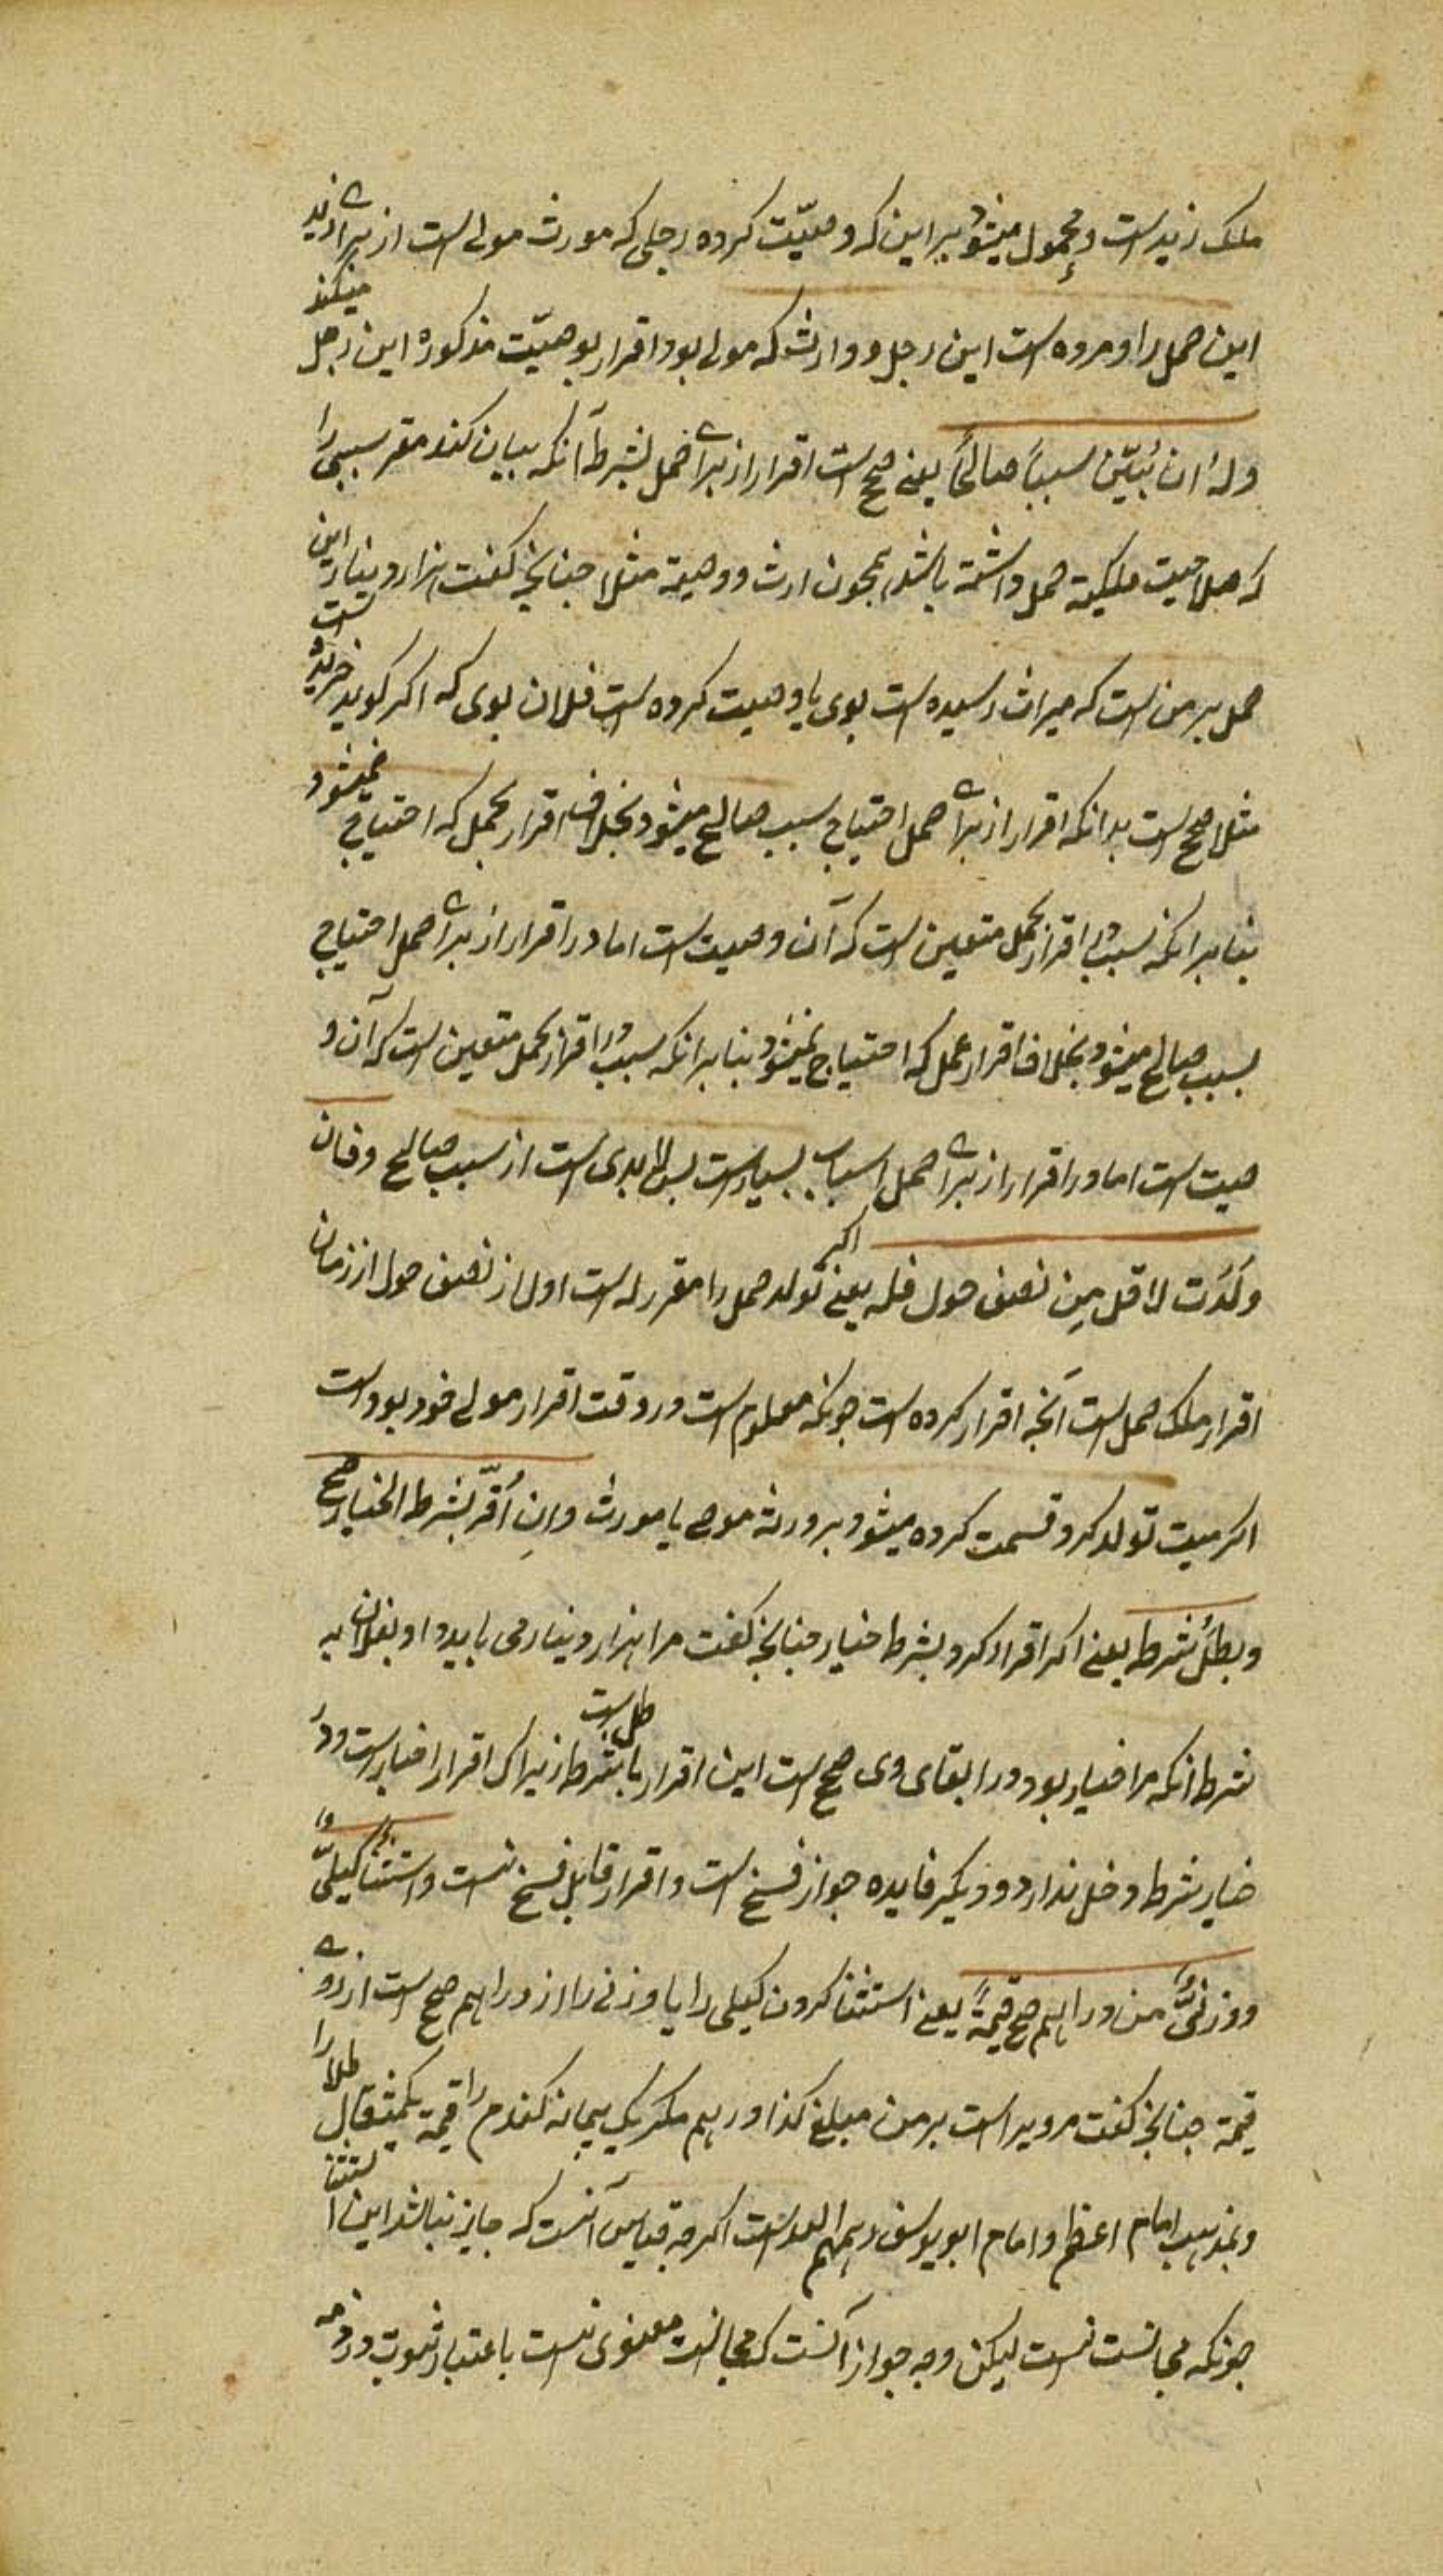 ملک زیدست و محمول میشود براین که وصیّت کرده رجلی که مورث مولی است از برای زید
این حمل را و مرده است این رجل و وارثش که مولی بود اقرار بوصیّت مذکوره این رجل میکند
وله ان یُبَیّن سبباً صالحاً یعنی صحیح است اقرار از برای حمل بشرط آنکه بیان کند مقر سببی را
که صلاحیت ملکیة حمل داشته باشد همچون ارث و وصیة مثلا چنانچه کفت هزار دینار این
حمل بر من است که میراث رسیده است بوی یا وصیت کرده است فلان بوی که اکر کوید خریده است
مثلا صحیح است بدانکه اقرار از برای حمل احتیاج بسبب صالح میشود بخلاف اقرار بحمل که احتیاج نمیشود
بنا برانکه سبب در اقرار بحمل متعین است که آن وصیت است اما در اقرار از برای حمل احتیاج
بسبب صالح میشود بخلاف اقرار بحمل که احتیاج نمیشود بنا برانکه سبب در اقرار بحمل متعین است که آن و
صیت است اما در اقرار از برای حمل اسباب بسیارست پس لابدی است از سبب صالح وفان
ولَدَت لاقل مِن نصف حول فله یعنی اکر تولد حمل را مقر له است اول از نصف حول از زمان
اقرار ملک حمل است آنچه اقرار کرده است چونکه معلوم است در وقت اقرار مولی خود بود است
اکر میت تولد کرد قسمت کرده میشود بر ورثه موصی یا مورث وانِ اُقَرّ بشرط الخیار صح
وبطلُ شرط یعنی اکر اقرار کرد بشرط خیار چنانچه کفت مرا هزار دینار می باید داد بفلان به
شرط انکه مرا خیار بود در ابقای وی صحیح است این اقرار باطل است شرط زیرا که اقرار اخبارست و در
خیار شرط دخل ندارد و دیکر فایده جواز فسخ است و اقرار قابل فسخ نیست واستثناءُ کیلیّ او
ووزنیّ من دراهم صح قیمةً یعنی استثنا کردن کیلی را یا وزنی را از دراهم صحیح است از روی
قیمة چنانچه کفت مرویراست بر من مبلغ کذا درهم مکر یک پیمانه کندم را قیمة یکمثقال طلا را
وبمذهب امام اعظم و امام ابو یوسف رحمهم الله است اکرچه قیاس آنست که جایز نباشد این استثنا
چونکه مجانست نیست لیکن وجه جواز آنست که مجانست معنوی است باعتبار ثبوت در ذمه